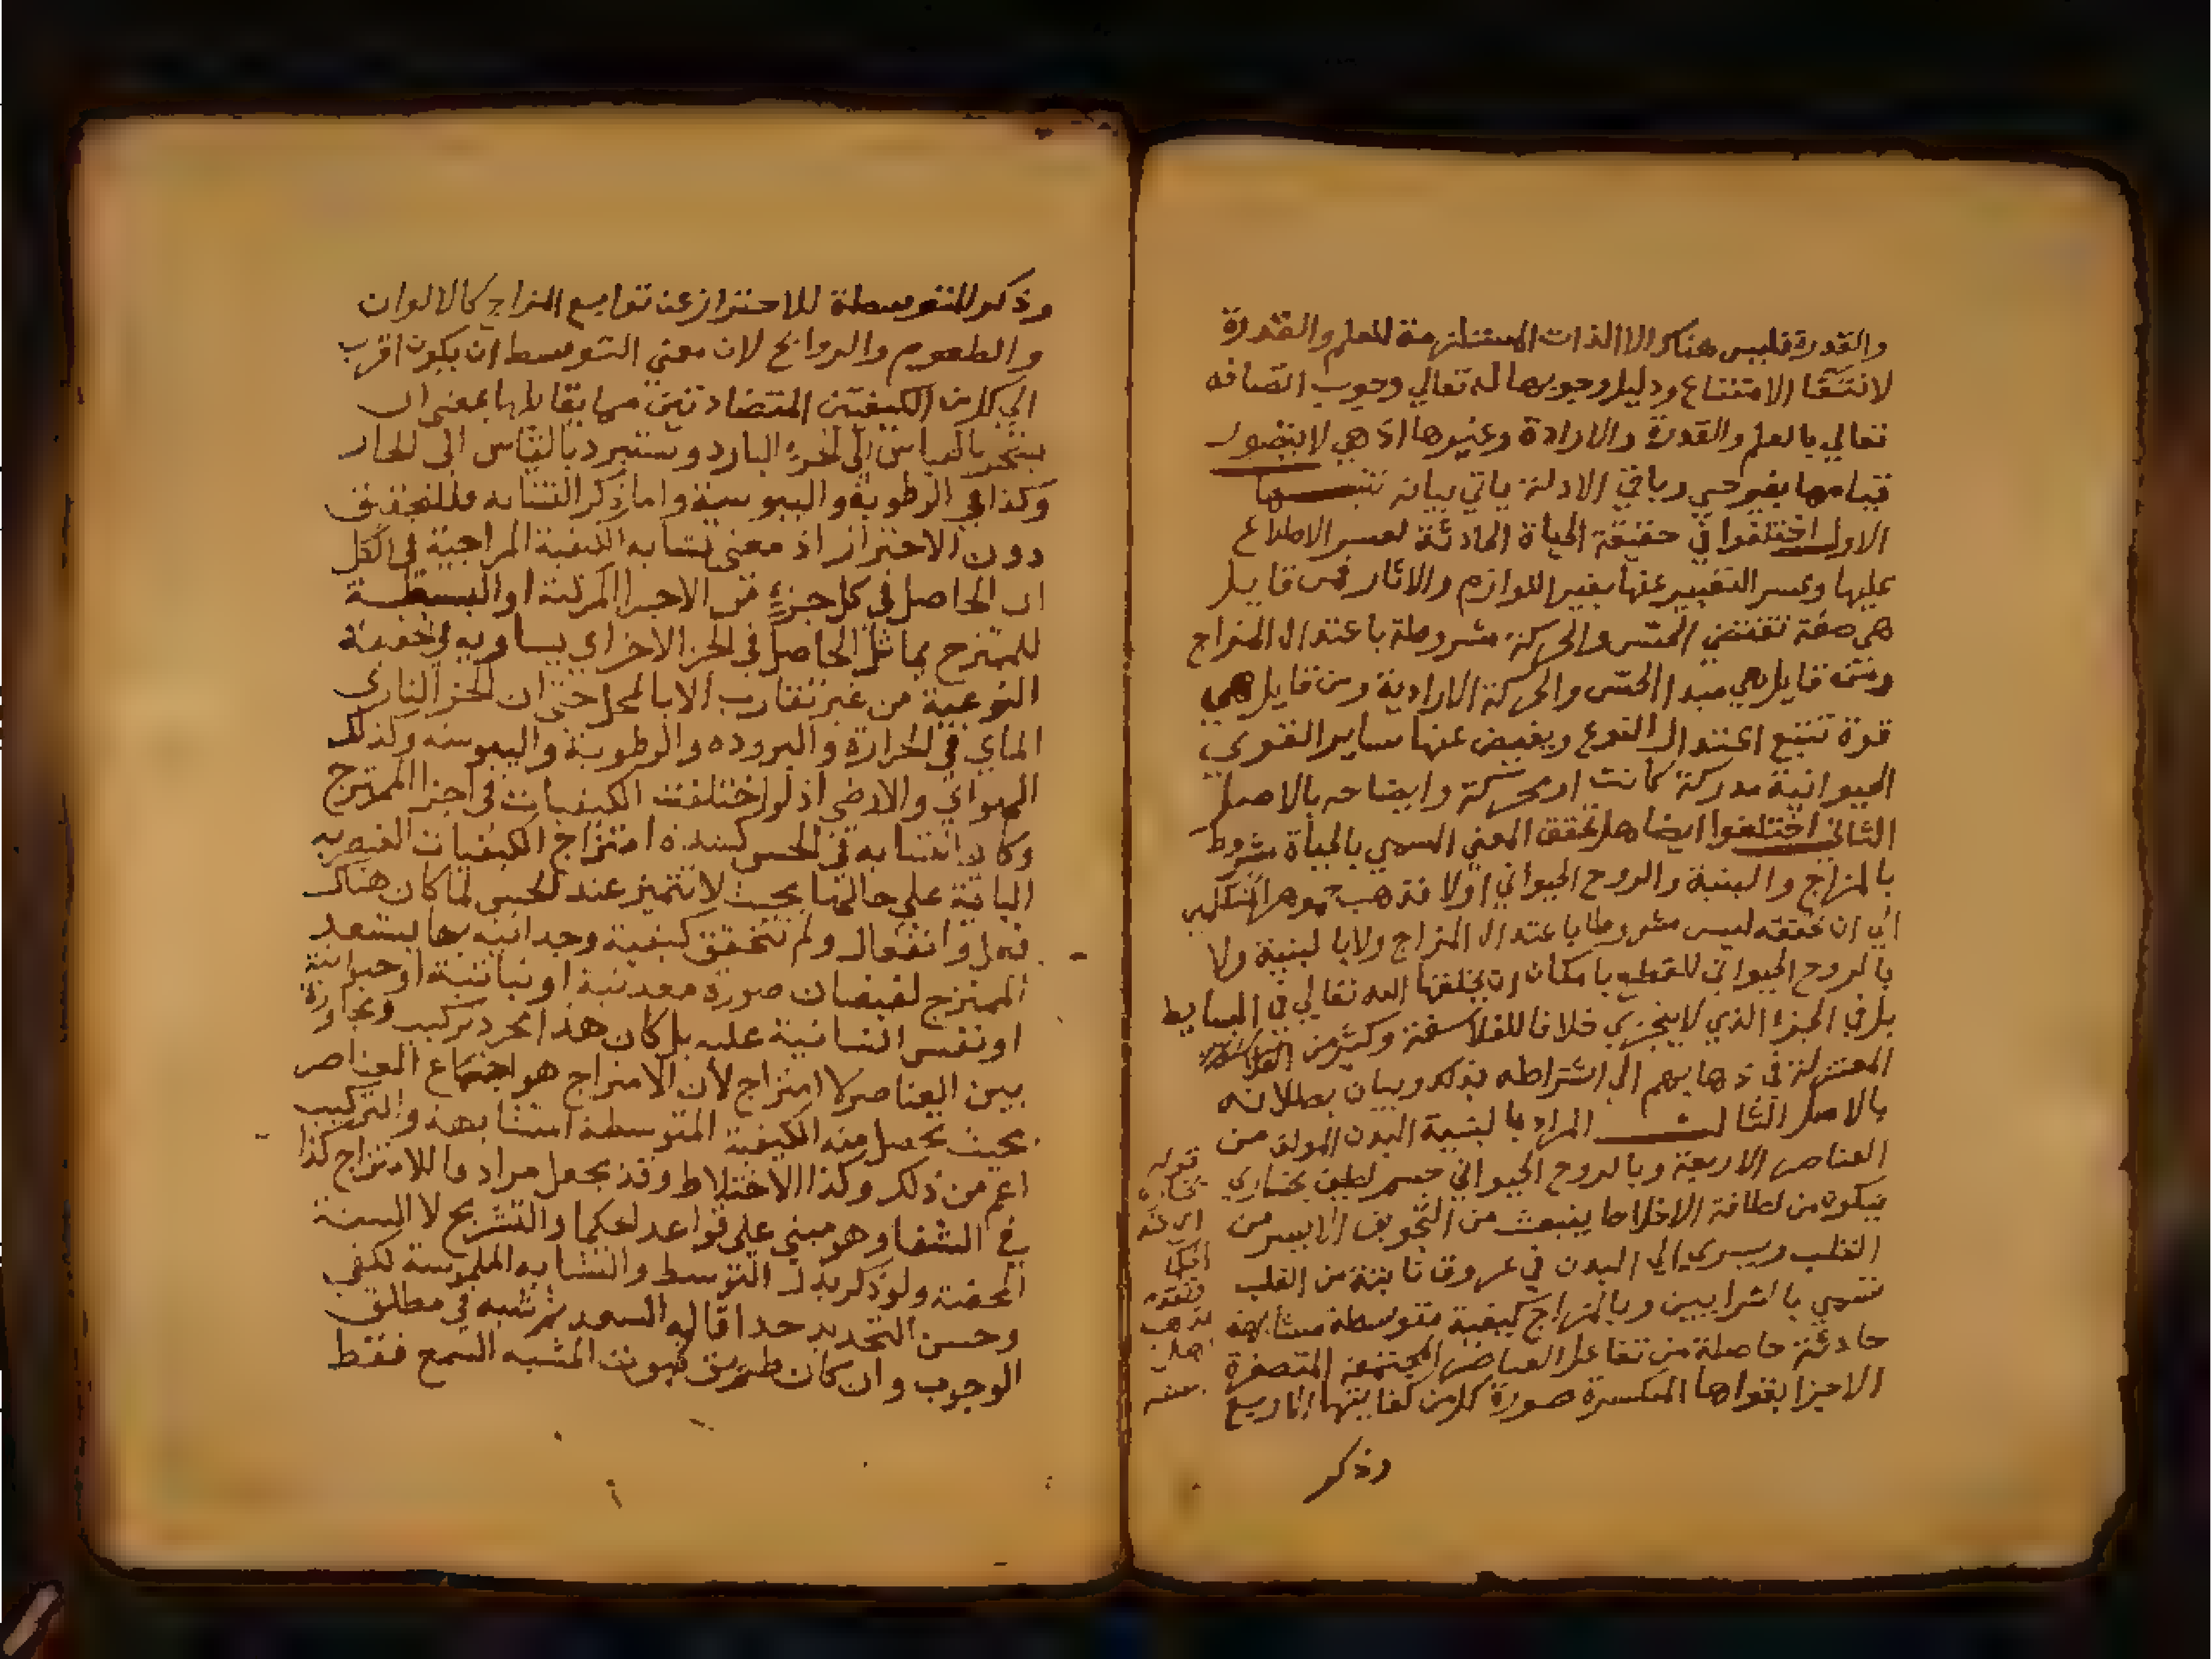 والقدرة فليس هناك الا الذات المستلزمة للعلم والقدرة
لانتفا الامتناع ودليل وجوبها له تعالي وجوب اتصافه
تعالي بالعلم والقدرة والارادة وغيرها اذ هي لا يتصور
قيامها بغير حي وباقي الادلة ياتي بيانه تنبيها
الاول اختلفوا في حقيقة الحياة الحادثة لعسر الاطلاع
عليها وعسر التعبير عنها بغير اللوازم والاثار فمن قايل
هي صفة تقتضي الحس والحركة مشروطة باعتدال المزاج
ومن قايل هي مبدا الحس والحركة الارادية ومن قايل هي
قوة تتبع اعتدال النوع ويفيض عنها ساير القوي
الحيوانية مدركة كانت او محركة وايضاحه بالاصل
الثاني اختلفوا ايضا هل تحقق المعني المسمي بالحياة مشروط
بالمزاج والبنية والروح الحيواني اولا فذهب جمهور المتكلمين
الي ان تحققه ليس مشروطا باعتدال المزاج ولا بالبنية ولا
بالروح الحيواني للقطع بامكان ان يخلقها الله تعالي في البسايط
بل في الجزء الذي لا يتجزي خلافا للفلاسفة وكثير من
المعتزلة في ذهابهم الي اشتراطه بذلك وبيان بطلانه
بالاصل الثالث المراد بالبنية البدن المولف من
العناصر الاربعة وبالروح الحيواني جسم لطيف بخاري
يتكون من لطافة الاخلاط ينبعث من التجويف الايسر من
القلب ويسري الي البدن في عروق نابتة من القلب
تسمي بالشرايين وبالمزاج كيفية متوسطة متشابهة
حادثة حاصلة من تفاعل العناصر المجتمعة المتصغرة
الاجزا بقواها المنكسرة صورة كل من كيفياتها الاربع
قوله
اهل
وذكر
وذكر المتوسطة للاحتراز عن توابع المزاج كالالوان
والطعوم والروايح لان معني التوسط ان يكون اقرب
الي كل من الكيفيتين المتضادتين مما يقابلها بمعني ان
يستحر بالقياس الي الجزء البارد ويستبرد بالقياس الي الحار
وكذا في الرطوبة واليبوسة واما ذكر التشابه فللتحقيق
دون الاحتراز اذ معني تشابه الكيفية المزاجية في الكل
ان الحاصل في كل جزء من الاجزا المركبة او البسيطة
للممتزج مماثل الحاصل في الجزا الاخر اي يساويه في الحقيقة
النوعية من غير تفاوت الا بالمحل حتي ان الجزا الناري
الماي في الحرارة والبروده والرطوبة واليبوسه وكذلك
الهواي والارضي اذ لو اختلفت الكيفيات في اجزا الممتزج
وكان التشابه في الحس لشدة امتزاج الكيفيات العنصريه
الباقية علي حالها بحيث لا تتميز عند الحس لما كان هناك
فعل وانفعال ولم تتحقق كيفية وحدانية بها يستعد
الممتزج لفيضان صورة معدنية او نباتية او حيوانية
او نفس انسانية عليه بل كان هذا مجرد تركيب ومجاورة
بين العناصر لا امتزاج لان الامتزاج هو اجتماع العناصر
بحيث تحصل منه الكيفية المتوسطة المتشابهة والتركيب
اعم من ذلك وكذا الاختلاط وقد يجعل مرادفا للامتزاج كذا
في الشفا وهو مبني علي قواعد الحكما والتشريح لا السنة
المحضة ولو ذكر بدل التوسط والتشابه الملموسة لكفي
وحسن التحديد حدا قاله السعد ثم شبه في مطلق
الوجوب وان كان طريق ثبوت المشبه السمع فقط